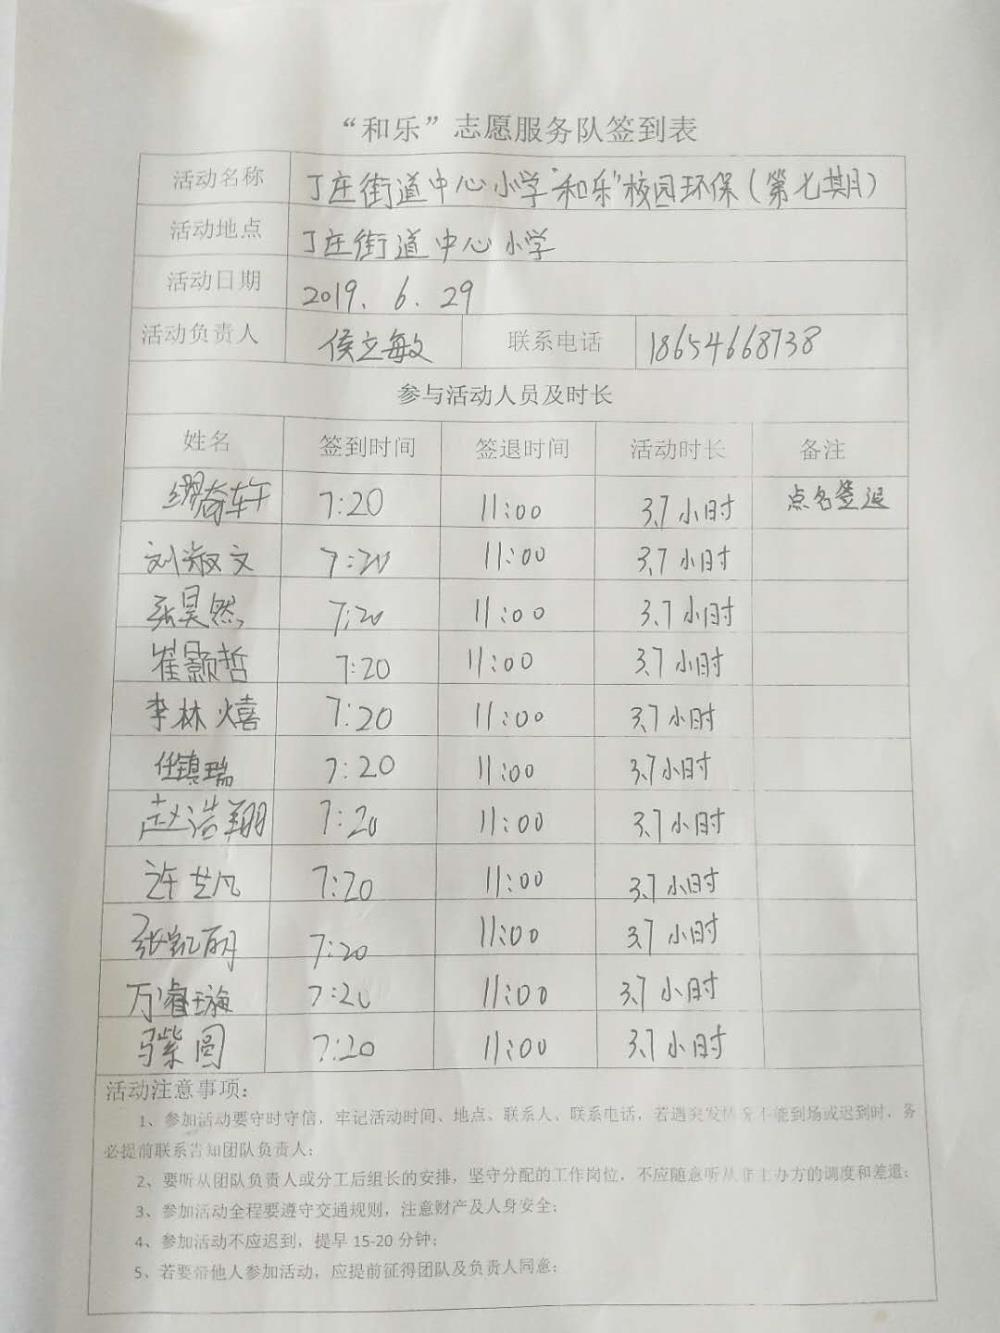 “和乐”志愿服务队签到表
活动名称 丁庄街道中心小学“和乐”校园环保（第七期）
活动地点 丁庄街道中心小学
活动日期 2019.6.29
活动负责人 侯立敏 联系电话 18654668738
参与活动人员及时长
姓名 签到时间 签退时间 活动时长 备注
缪奇轩 7:20 11:00 3.7小时 点名签退
刘淑文 7:20 11:00 3.7小时
张昊然 7:20 11:00 3.7小时
崔颢哲 7:20 11:00 3.7小时
李林熺 7:20 11:00 3.7小时
任镇瑞 7:20 11:00 3.7小时
赵浩翔 7:20 11:00 3.7小时
许艺凡 7:20 11:00 3.7小时
张凯丽 7:20 11:00 3.7小时
万睿璇 7:20 11:00 3.7小时
紫圆 7:20 11:00 3.7小时
活动注意事项：
1、参加活动要守时守信，牢记活动时间、地点、联系人、联系电话，若遇突发情况不能到场或迟到时，务
必提前联系告知团队负责人；
2、要听从团队负责人或分工后组长的安排，坚守分配的工作岗位，不应随意听从非主办方的调度和差遣；
3、参加活动全程要遵守交通规则，注意财产及人身安全；
4、参加活动不应迟到，提早 15-20 分钟；
5、若要带他人参加活动，应提前征得团队及负责人同意；